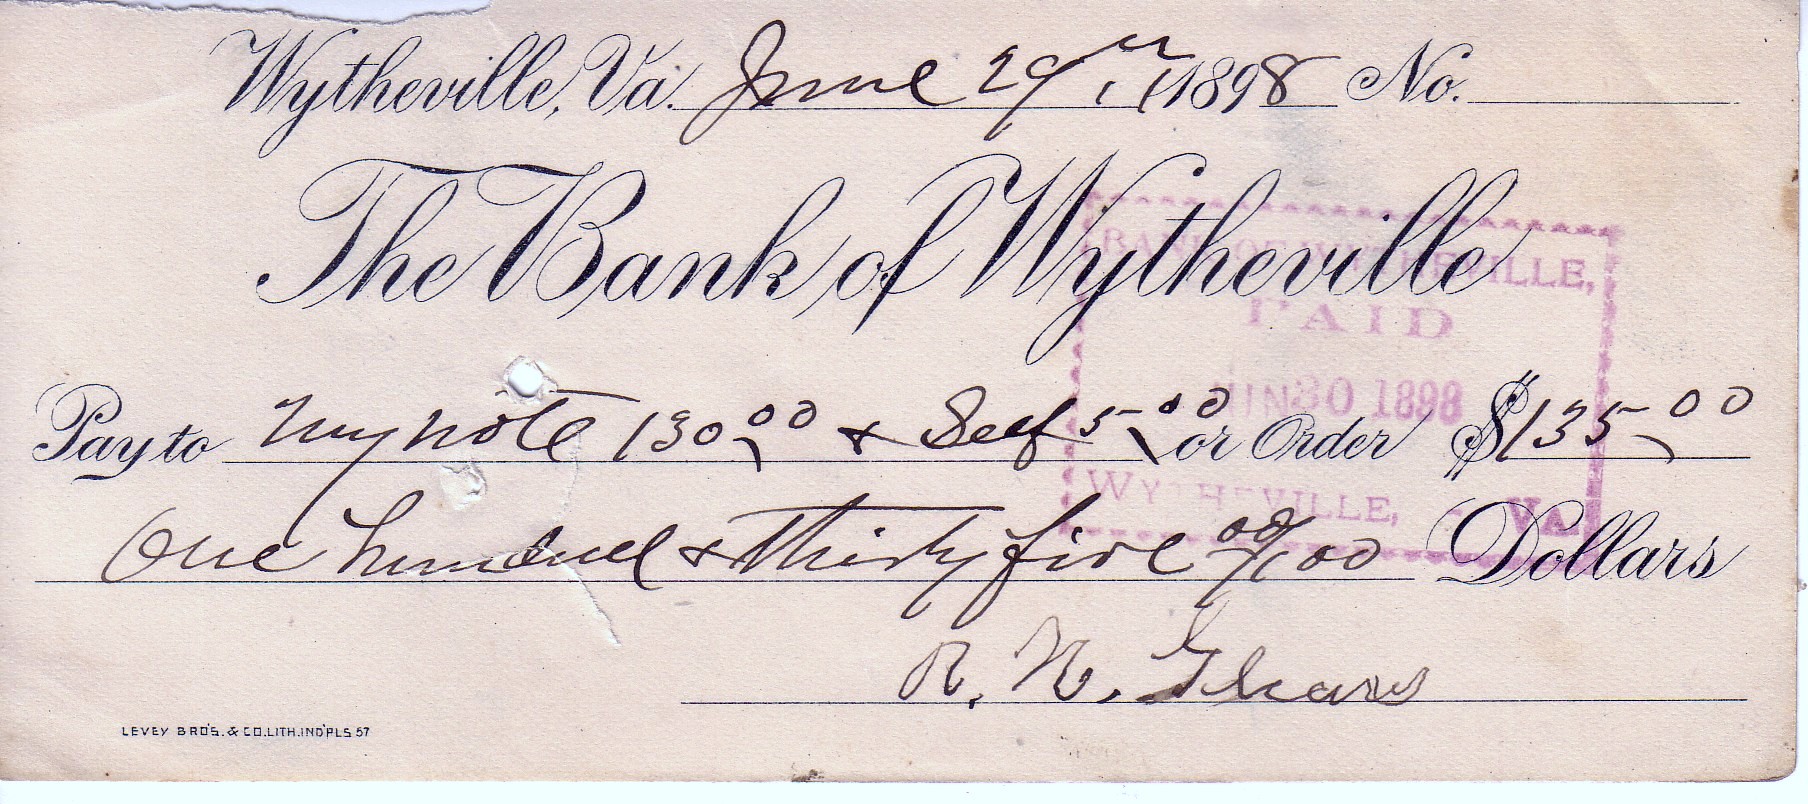 Wytheville, Va. June 29th 1898 No.
The Bank of Wytheville
BANK OF WYTHEVILLE,
PAID
JUN 30 1898
Pay to my note 130.00 + Self 5.00 or Order $135.00
WYTHEVILLE, VA.
One hundred + thirty five 00/100 Dollars
R. N.
LEVEY BRO'S. & CO. LITH. IND'PLS 57